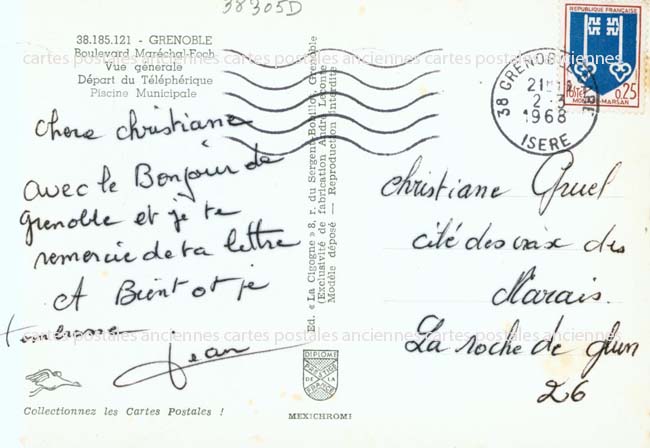 38305D
38.185.121 - GRENOBLE
Boulevard Maréchal-Foch
Vue générale
Départ du Téléphérique
Piscine Municipale
chere christiane
avec le Bonjour de
grenoble et je te
remercie de ta lettre
A Bientot je
t'embrasse
jean
Collectionnez les Cartes Postales !
Ed. « La Cigogne » 8, r. du Sergent Bobillot, Grenoble
(Exclusivité de fabrication André Leconte
Modèle déposé — Reproduction interdite
DIPLOME
PRESTIGE
DE LA
FRANCE
MEXICHROME
REPUBLIQUE FRANÇAISE
POSTES
0,25
MONT-DE-MARSAN
38 GRENOBLE GARE
21H
2-3
1968
ISERE
christiane Gruel
cité des des
Marais.
La roche de glun
26
cartes postales anciennes cartes postales anciennes cartes postales anciennes
cartes postales anciennes cartes postales anciennes cartes postales anciennes